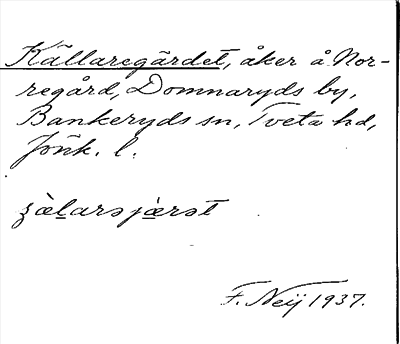 Källaregärdet, åker å Nor-
regård, Domnaryds by,
Bankeryds sn, Tveta hd,
Jönk. l.
F. Neij 1937.